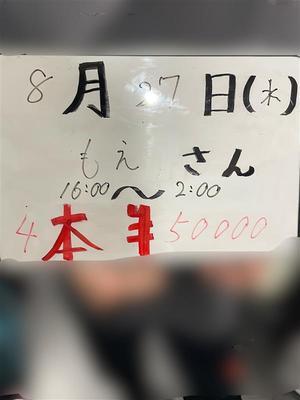 8月27日(水)
もえ さん
16:00～2:00
4本 ¥50000